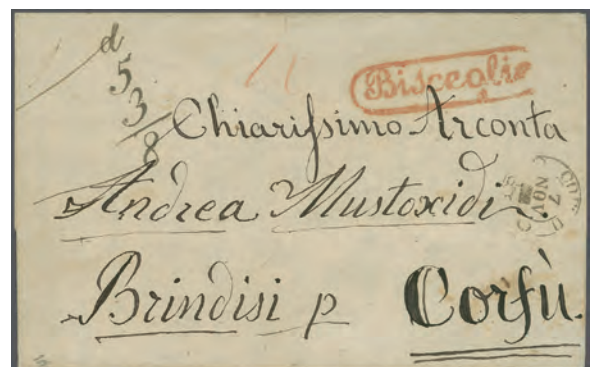 d
5
3
8
Bisceglie
Chiarissimo Arconta
Andrea Mustoxidi
Brindisi p Corfù.
7
NOV